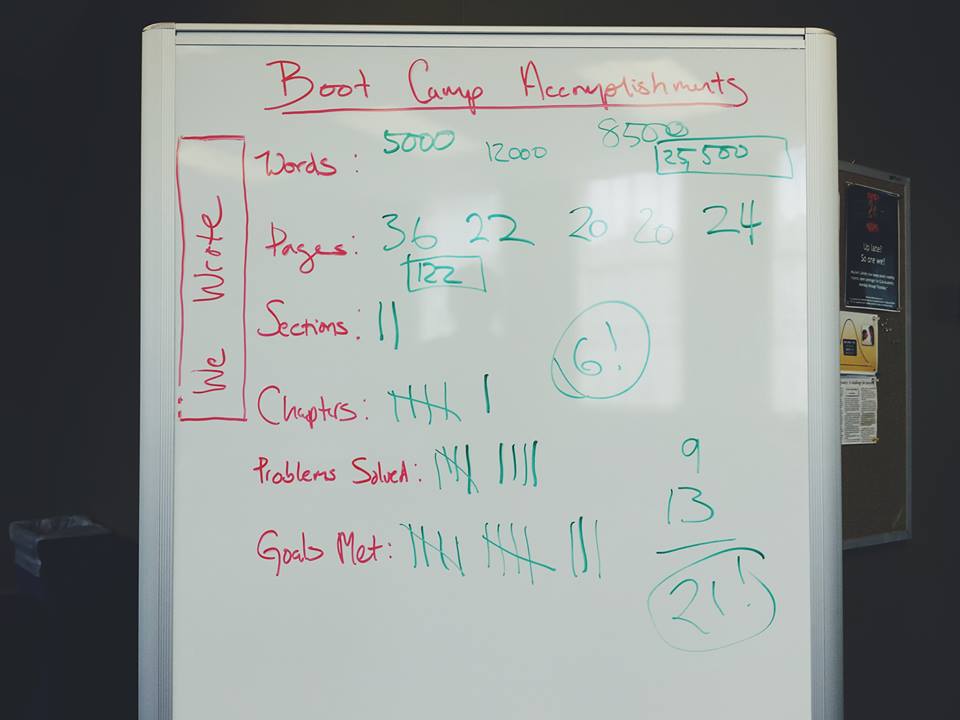 Boot Camp Accomplishments
We Wrote
Words: 5000 12000 8500
25,500
Pages: 36 22 20 20 24
122
Sections: ||
6!
Chapters: |||| |
Problems Solved: |||| ||||
9
13
Goals Met: |||| |||| |||
21!
Up late?
So are we!!